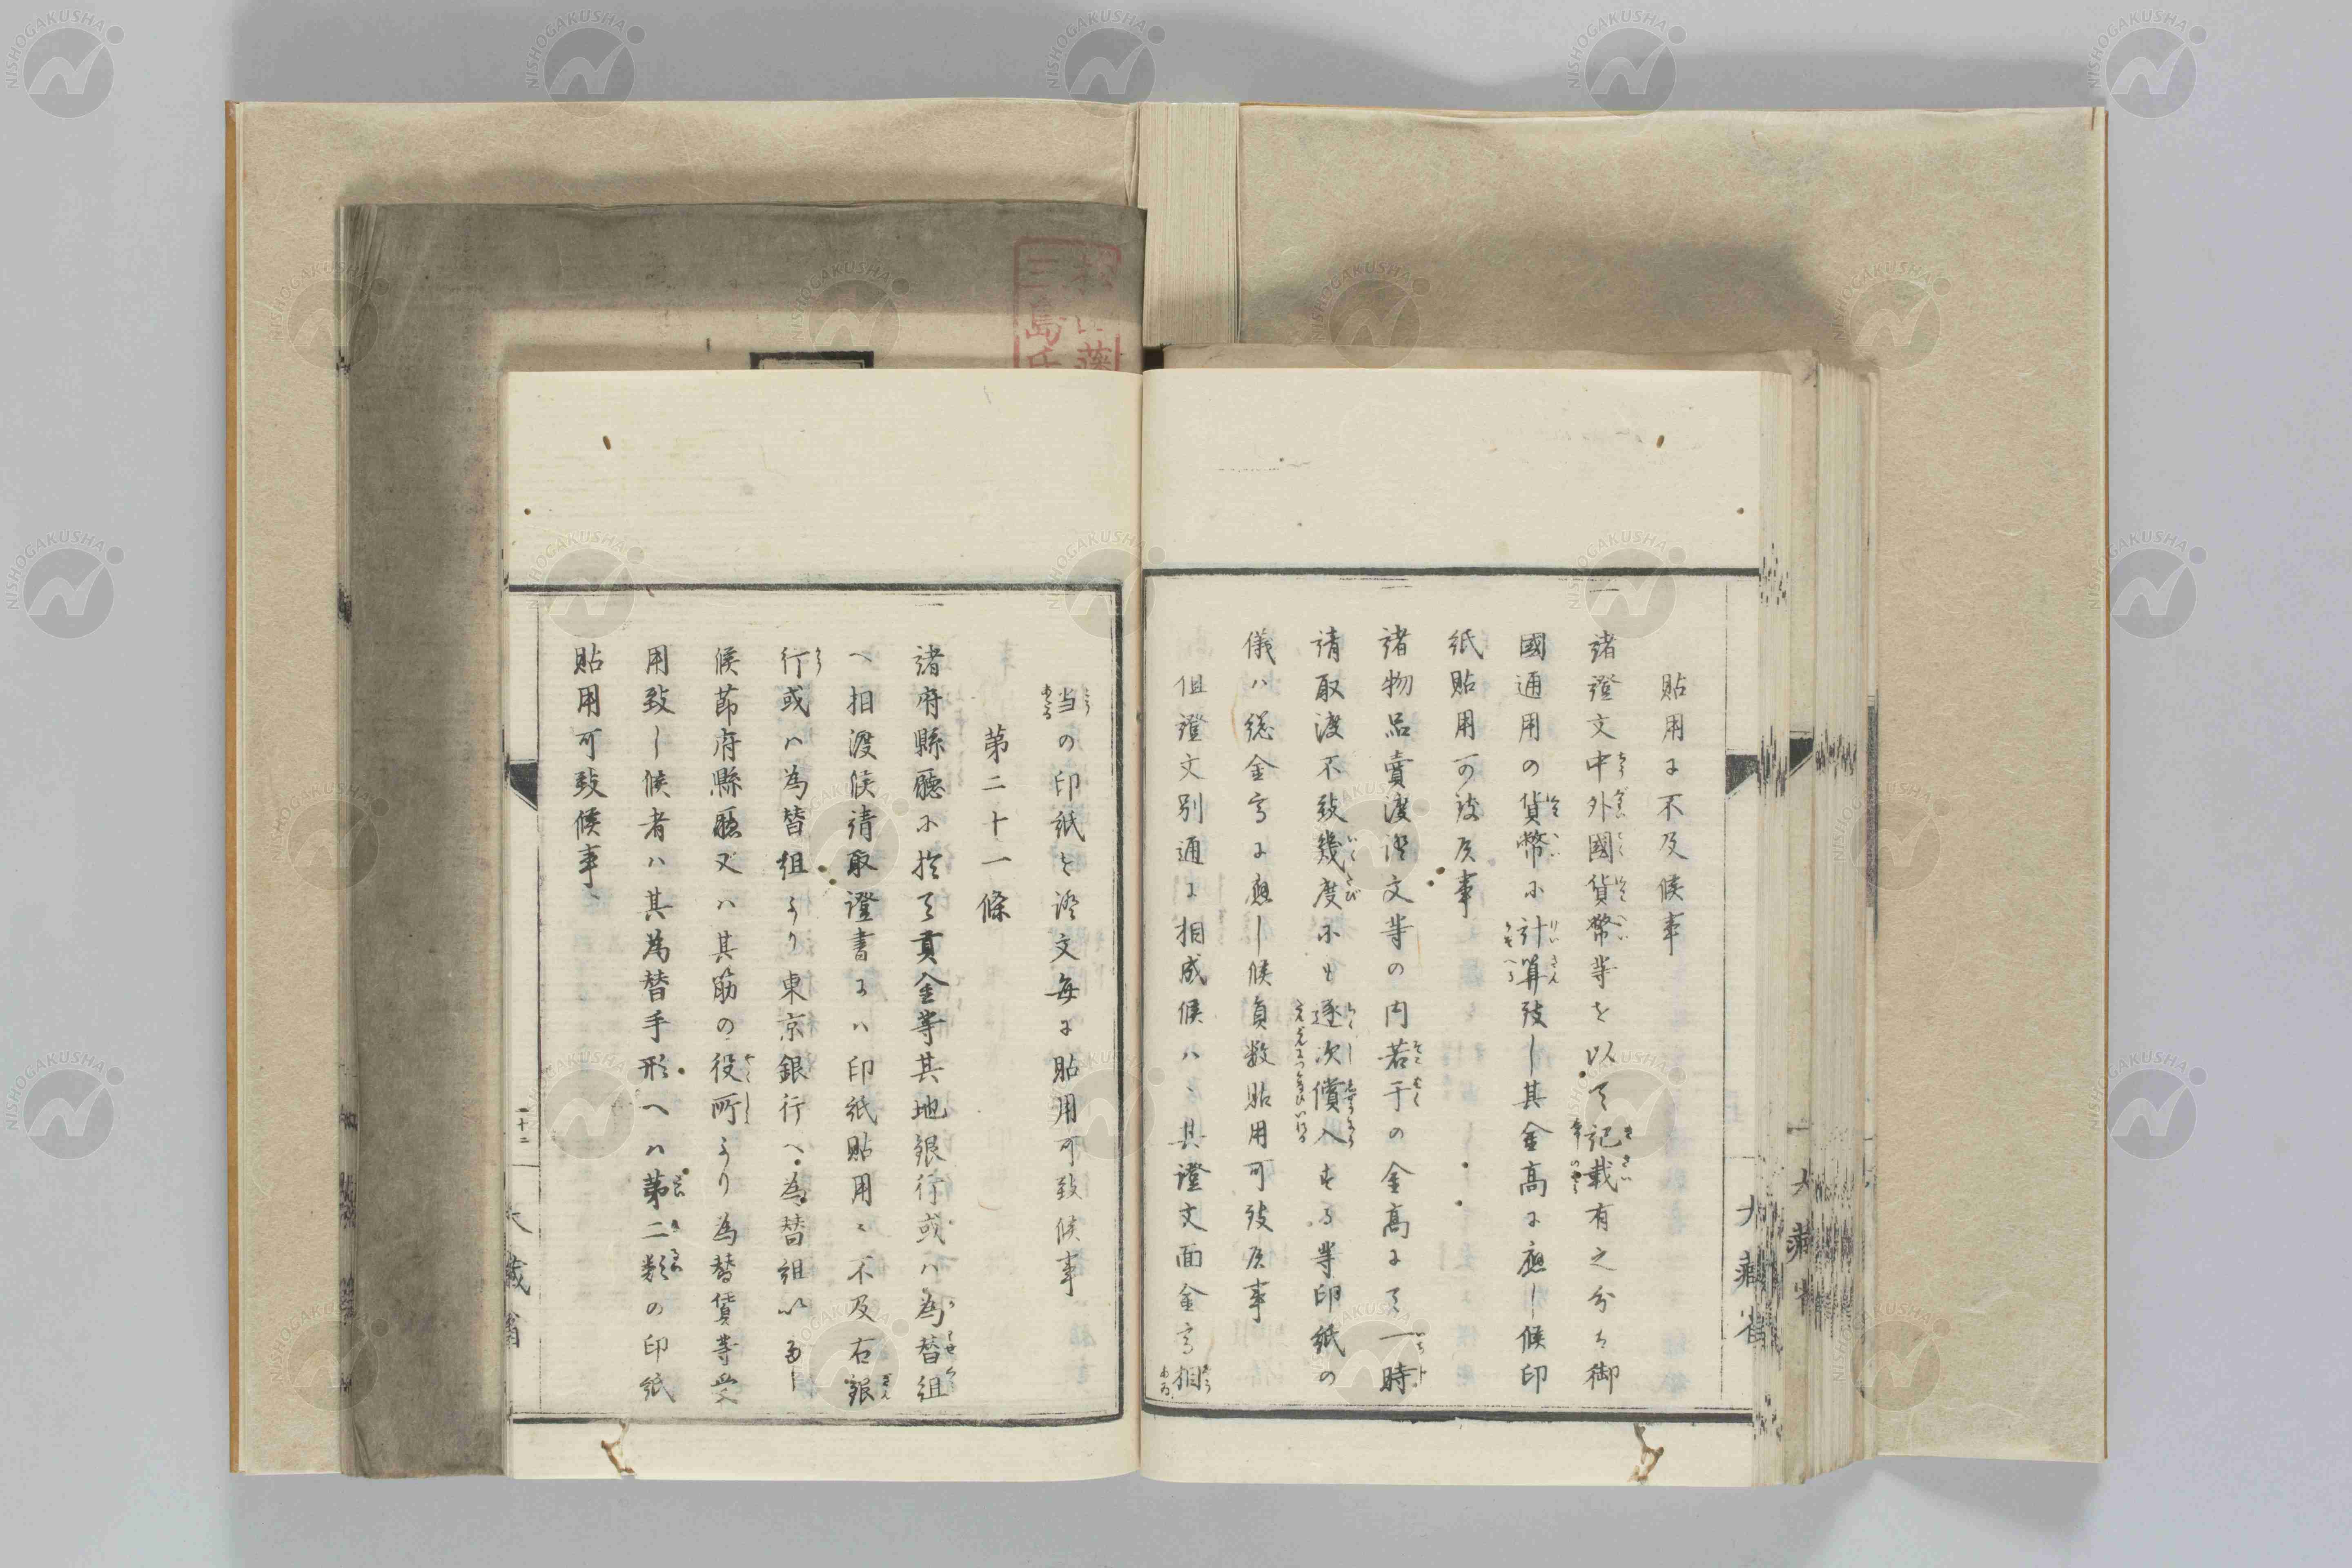 貼用ニ不及候事
一諸證文中外國貨幣等を以て記載有之分ハ御
國通用の貨幣に計算致し其金高に應し候印
紙貼用可致候事
一諸物品賣渡證文等の内若干の金高にて一時
請取渡不致幾度にも逐次償入する等印紙の
儀ハ総金高に應し候員数貼用可致候事
但證文別通に相成候ハヽ其證文面金高相
当の印紙を證文毎に貼用可致候事
第二十一條
一諸府縣廳に於て貢金等其地銀行或ハ為替組
へ相渡候請取證書にハ印紙貼用ニ不及右銀
行或ハ為替組より東京銀行へ為替組いたし
候節府縣廳又ハ其筋の役所より為替賃等受
用致し候者ハ其為替手形へハ第二類の印紙
貼用可致候事
二十二
大蔵省
大藏省
三島氏
NISHOGAKUSHA